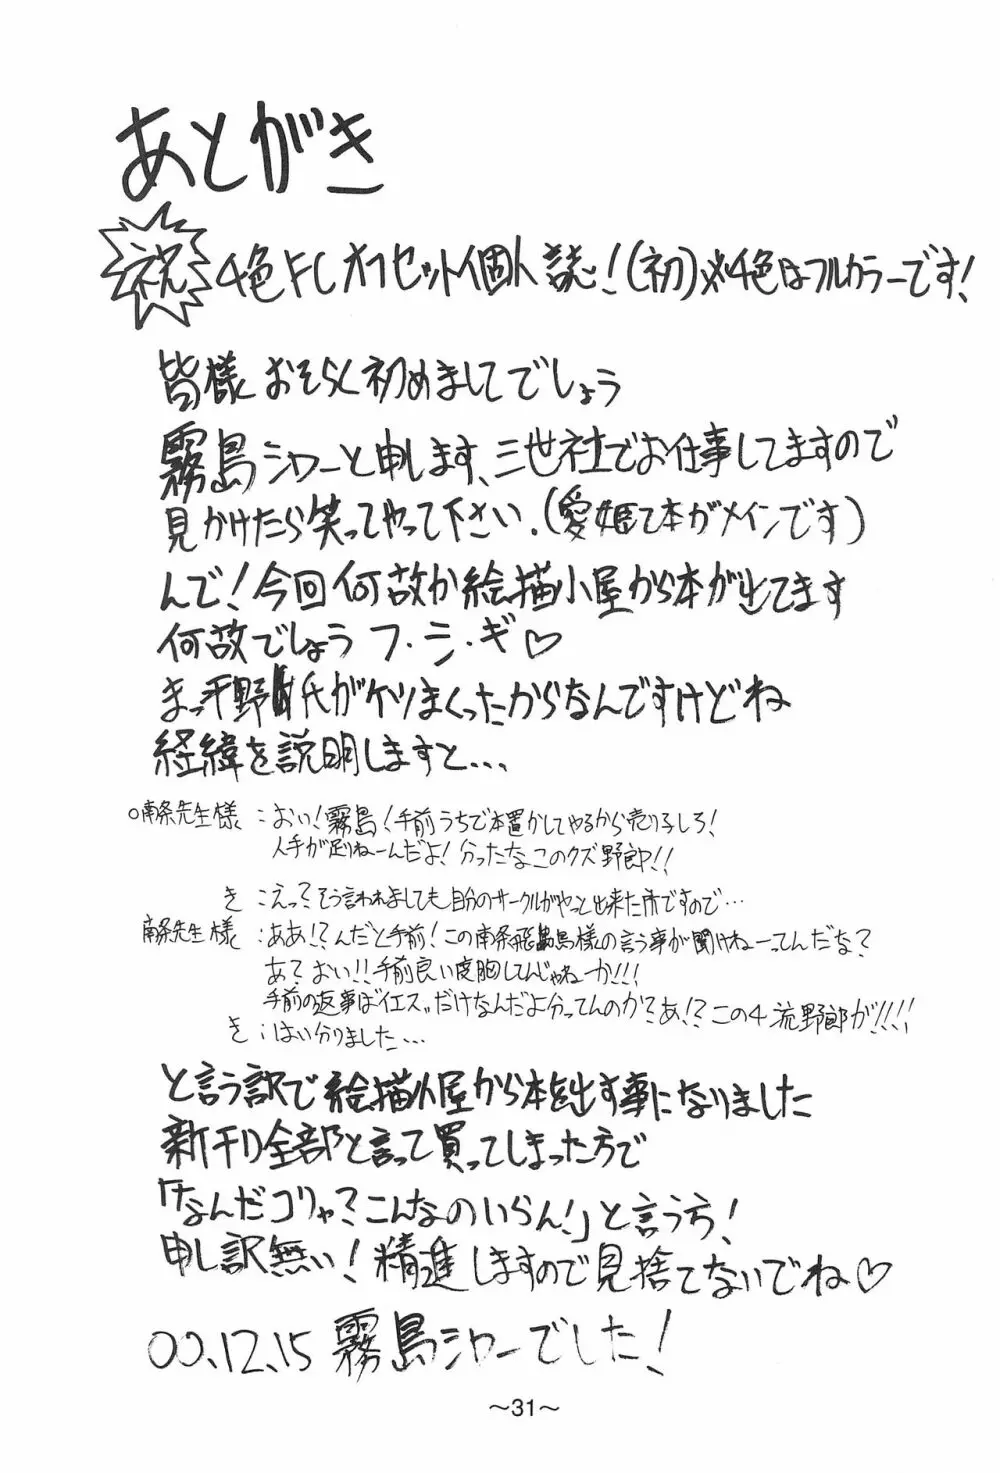 あとがき
祝 4色FCオフセット個人誌!(初)※4色はフルカラーです!
皆様おそらく初めましてでしょう
霧島シャーと申します、三世社でお仕事してますので
見かけたら笑ってやって下さい.(愛姫って本がメインです)
んで!今回何故か絵描小屋から本が出てます
何故でしょう フ・シ・ギ♡
まっ平野氏がケツまくったからなんですけどね
経緯を説明しますと…
○南条先生様:おい!霧島!手前うちで本置かしてやるから売り子しろ!
人手が足りねーんだよ!分ったなこのクズ野郎!!
き:えっ?そう言われましても自分のサークルがやっと出来た所ですので…
南条先生様:ああ!?んだと手前!この南条飛鳥様の言う事が聞けねーってんだな?
あ?おい!!手前良い度胸してんじゃねーか!!!
手前の返事は"イエス"だけなんだよ分ってんのか?あ!?この4流野郎が!!!!
き:はい分りました…
と言う訳で絵描小屋から本を出す事になりました
新刊全部と言って買ってしまった方で
「なんだコリャ?こんなのいらん!」と言う方!
申し訳無い!精進しますので見捨てないでね♡
00.12.15 霧島シャーでした!
~31~